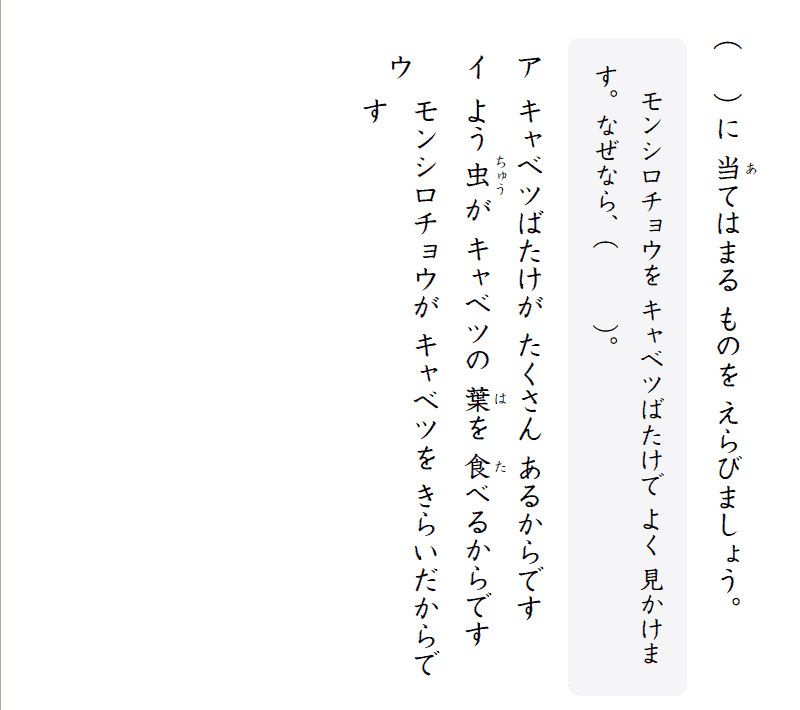 （　）に 当てはまる ものを えらびましょう。
モンシロチョウを キャベツばたけで よく 見かけま
す。なぜなら、（　　）。
ア キャベツばたけが たくさん あるからです
イ よう虫が キャベツの 葉を 食べるからです
ウ モンシロチョウが キャベツを きらいだからで
す